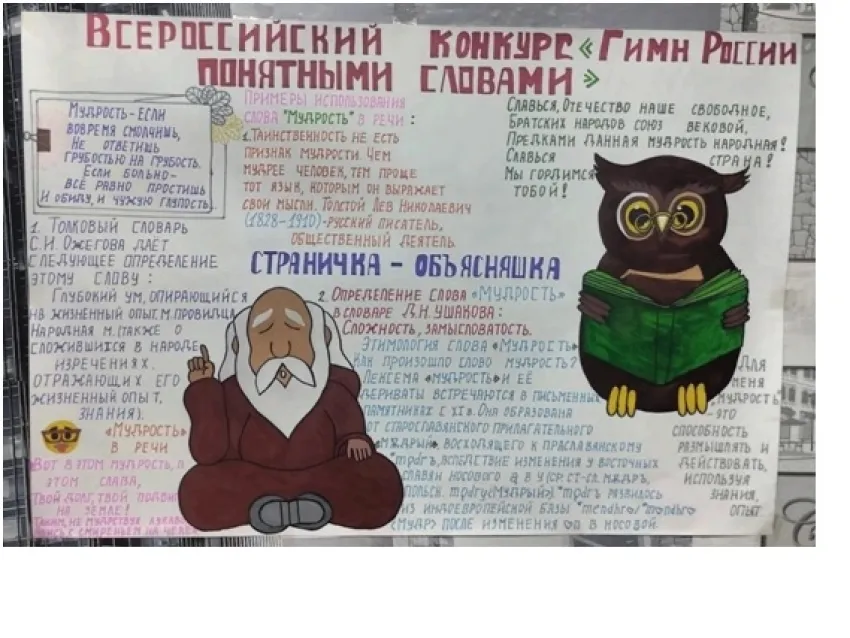 Всероссийский конкурс «Гимн России
понятными словами»
Мудрость - если
вовремя смолчишь,
Не ответишь
грубостью на грубость.
Если больно-
всё равно простишь
и обиду, и чужую глупость.
Примеры использования
слова "Мудрость" в речи:
1. Таинственность не есть
признак мудрости. Чем
мудрее человек, тем проще
тот язык, которым он выражает
свои мысли. Толстой Лев Николаевич
(1828-1910)-русский писатель,
общественный деятель.
Славься, Отечество наше свободное,
Братских народов союз вековой,
Предками данная мудрость народная!
Славься страна!
Мы гордимся
тобой!
1. Толковый словарь
С.И. Ожегова даёт
следующее определение
этому слову:
Глубокий ум, опирающийся
на жизненный опыт. М. провидца.
Народная м. (также о
сложившихся в народе
изречениях,
отражающих его
жизненный опыт,
знания).
«Мудрость»
в речи
Вот в этом мудрость, в
этом слава,
Твой долг, твой подвиг
на земле!
Страничка - объясняшка
2. Определение слова «Мудрость»
в словаре Д.Н. Ушакова:
Сложность, замысловатость.
Этимология слова «Мудрость»
Как произошло слово мудрость?
Лексема «мудрость» и её
дериваты встречаются в письменных
памятниках с XI в. Она образована
от старославянского прилагательного
восходящего к праславянскому
вследствие изменения у восточных
славян носового
развилось
из индоевропейской базы
(мудр) после изменения в носовой.
Для
меня
"Мудрость"
-это
способность
размышлять и
действовать,
используя
знания,
опыт